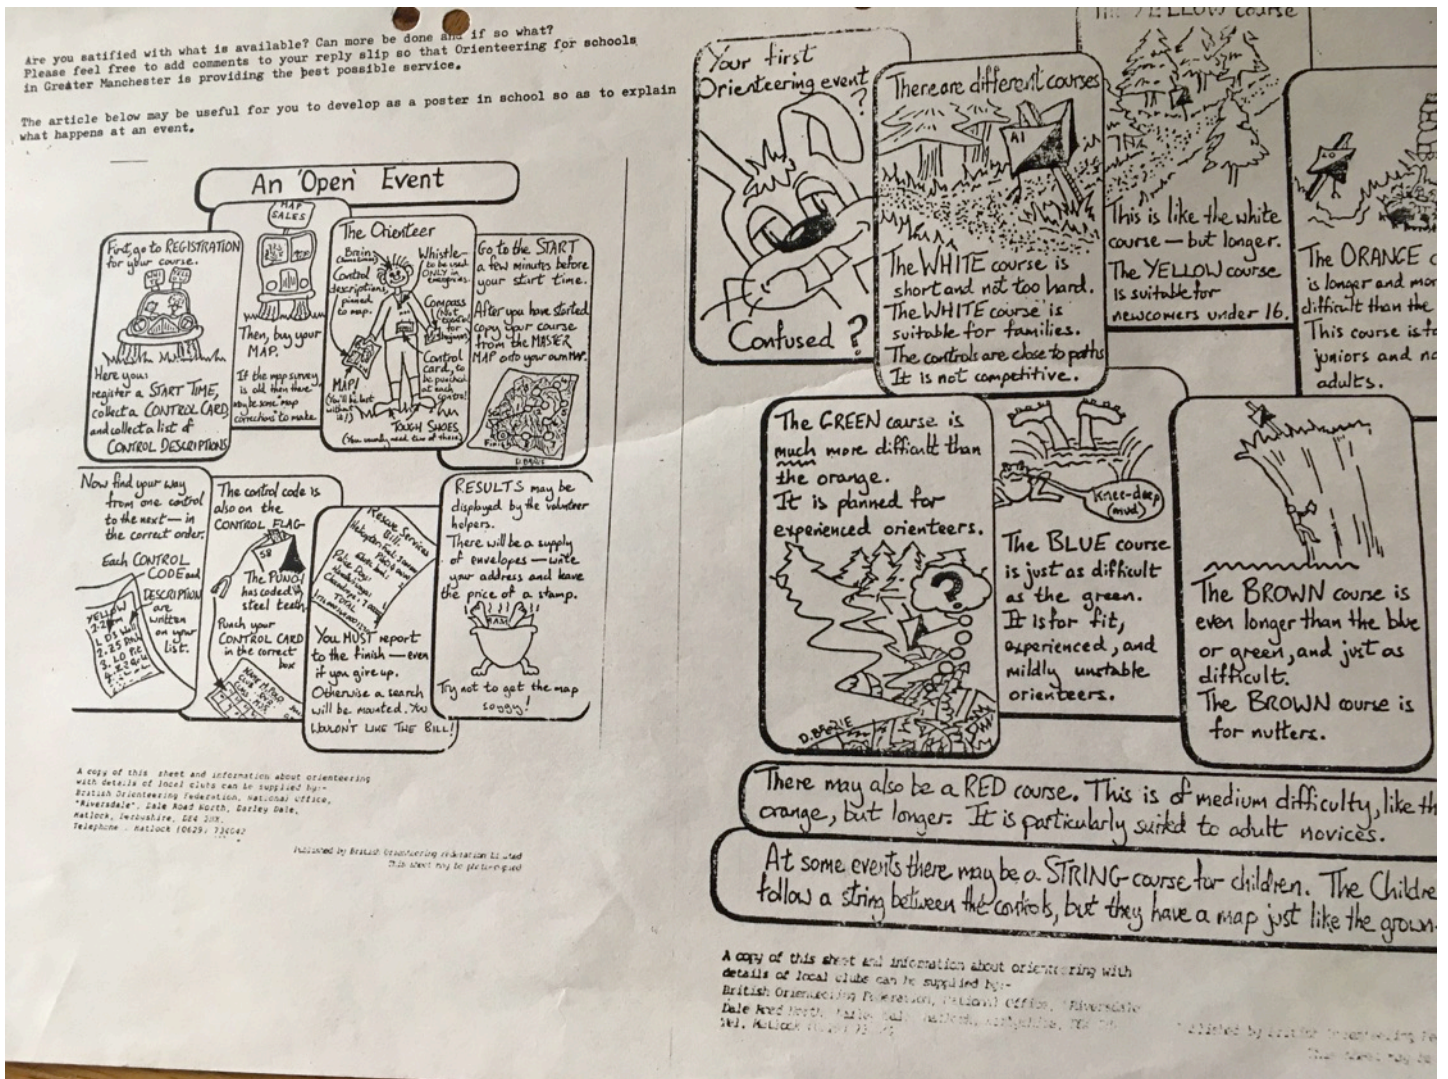 Are you satified with what is available? Can more be done and if so what?
Please feel free to add comments to your reply slip so that Orienteering for schools
in Greater Manchester is providing the best possible service.
The article below may be useful for you to develop as a poster in school so as to explain
what happens at an event.
An 'Open' Event
First, go to REGISTRATION
for your course.
Here you:
register a START TIME,
collect a CONTROL CARD,
and collect a list of
CONTROL DESCRIPTIONS
MAP
SALES
Then, buy your
MAP.
If the map survey
is old then there
may be some map
corrections to make
The Orienteer
Brain
Control
descriptions,
pinned
to map.
MAP!
(You'll be lost
without
it!)
Whistle—
to be used
ONLY in
emergencies.
Compass
(Not
for
Control
card, to
be punched
at each
control
TOUGH SHOES
(You usually need two of these)
Go to the START
a few minutes before
your start time.
After you have started
copy your course
from the MASTER
MAP onto your own MAP.
Start
Finish
D.BRODIE
Now find your way
from one control
to the next — in
the correct order.
Each CONTROL
CODE and
DESCRIPTION
are
written
on your
list.
YELLOW
3. LO Pit
The control code is
also on the
CONTROL FLAG—
58
The PUNCH
has coded
steel teeth
Punch your
CONTROL CARD
in the correct
box
Rescue Services
Bill.
Police Dogs
TOTAL
You MUST report
to the finish — even
if you give up.
Otherwise a search
will be mounted. You
WOULDN'T LIKE THE BILL!
RESULTS may be
displayed by the volunteer
helpers.
There will be a supply
of envelopes — write
your address and leave
the price of a stamp.
Try not to get the map
soggy!
A copy of this sheet and information about orienteering
with details of local clubs can be supplied by:-
British Orienteering Federation, National Office,
"Riversdale", Dale Road North, Darley Dale,
Matlock, Derbyshire, DE4 2HX.
Telephone - Matlock (0629) 734042
Published by British Orienteering Federation Limited
This sheet may be photocopied
Your first
Orienteering event
?
Confused ?
There are different courses
A1
The WHITE course is
short and not too hard.
The WHITE course is
suitable for families.
The controls are close to paths
It is not competitive.
The YELLOW course
This is like the white
course — but longer.
The YELLOW course
is suitable for
newcomers under 16.
LO
The ORANGE
is longer and
difficult than the
This course is
juniors and
adults.
The GREEN course is
much more difficult than
the orange.
It is planned for
experienced orienteers.
?
D.BRODIE
Knee-deep
(mud)
The BLUE course
is just as difficult
as the green.
It is for fit,
experienced, and
mildly unstable
orienteers.
The BROWN course is
even longer than the blue
or green, and just as
difficult.
The BROWN course is
for nutters.
There may also be a RED course. This is of medium difficulty, like
orange, but longer. It is particularly suited to adult novices.
At some events there may be a STRING-course for children. The
follow a string between the controls, but they have a map just like the
A copy of this sheet and information about orienteering with
details of local clubs can be supplied by:-
British Orienteering Federation, National Office, "Riversdale
Dale Road North, Darley Dale, Matlock, Derbyshire,
Tel. Matlock
Published by British Orienteering
This sheet may be